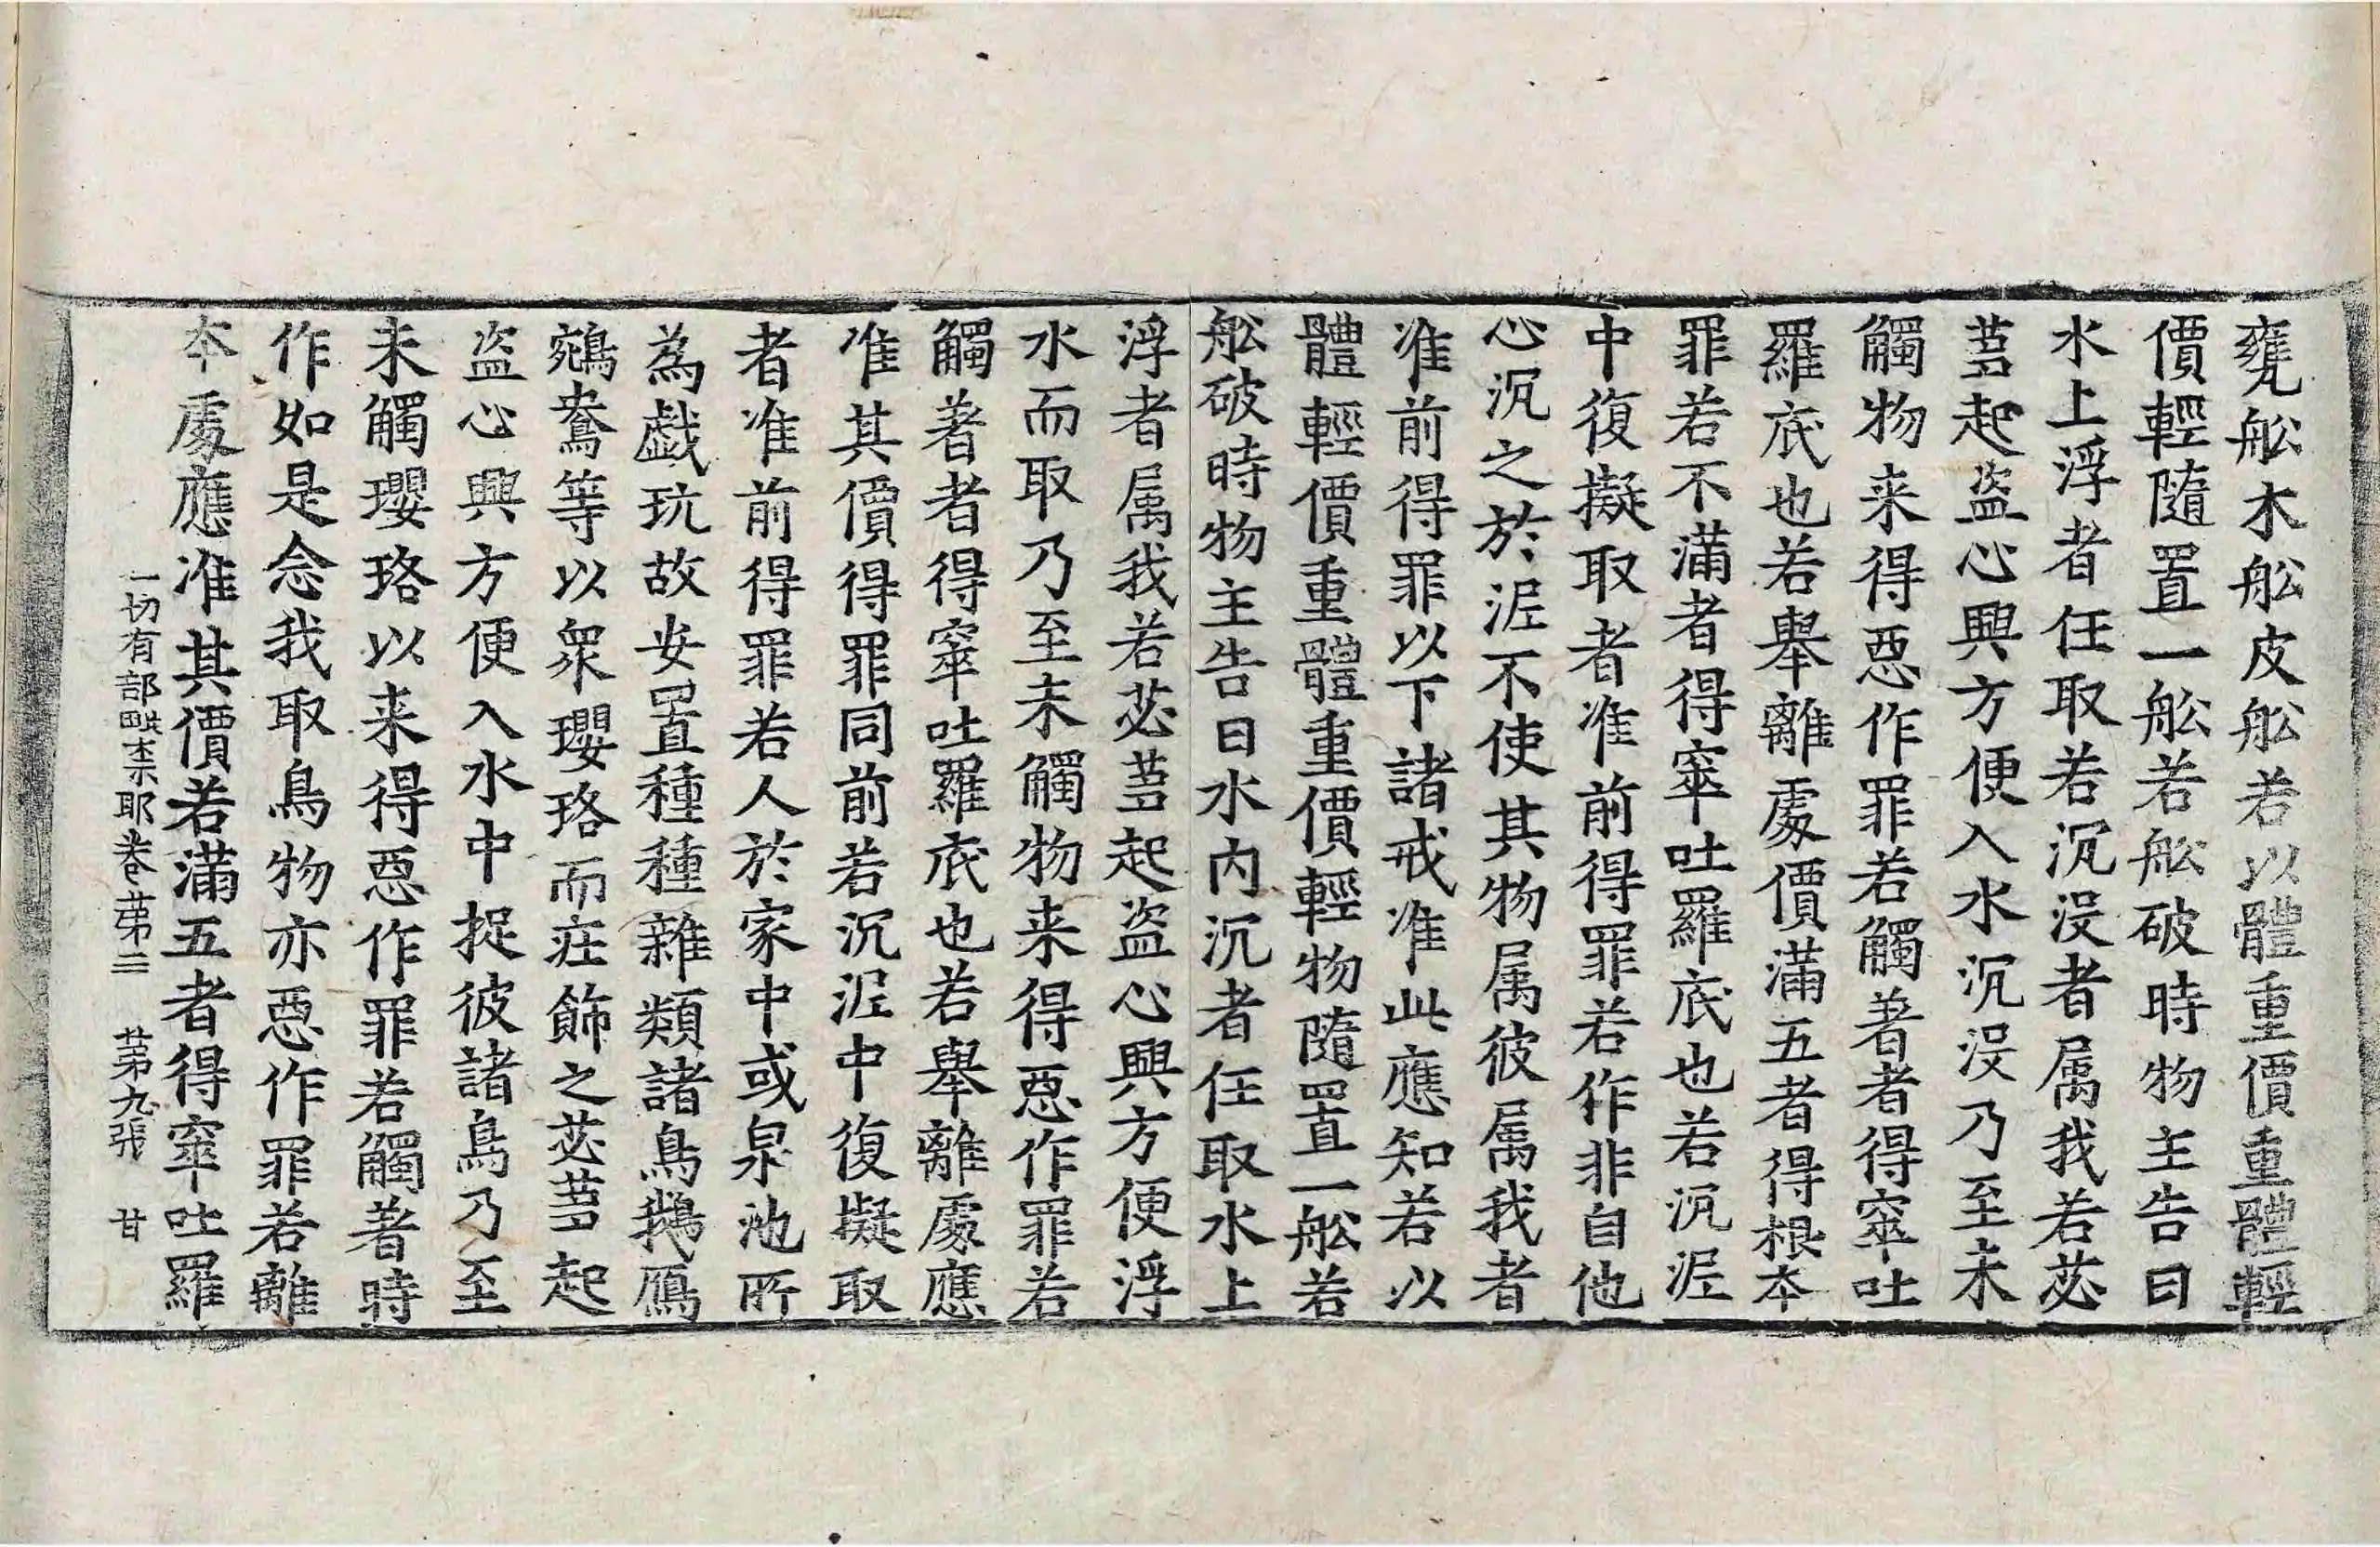 甕舩木舩皮舩若以體重價重體輕
價輕隨置一舩若舩破時物主告曰
水上浮者任取若沉没者属我若苾
蒭起盜心興方便入水沉没乃至未
觸物来得惡作罪若觸著者得窣吐
羅底也若舉離處價滿五者得根本
罪若不滿者得窣吐羅底也若沉泥
中復擬取者准前得罪若作非自他
心沉之於泥不使其物属彼属我者
准前得罪以下諸戒准此應知若以
體輕價重體重價輕物隨置一舩若
舩破時物主告曰水内沉者任取水上
浮者属我若苾蒭起盜心興方便浮
水而取乃至未觸物来得惡作罪若
觸著者得窣吐羅底也若舉離處應
准其價得罪同前若沉泥中復擬取
者准前得罪若人於家中或泉池所
為戱玩故安置種種雜類諸鳥鵝鴈
鵷鴦等以衆瓔珞而莊飾之苾蒭起
盜心興方便入水中捉彼諸鳥乃至
未觸瓔珞以来得惡作罪若觸著時
作如是念我取鳥物亦惡作罪若離
本處應准其價若滿五者得窣吐羅
一切有部毗柰耶卷第三 第九張 甘